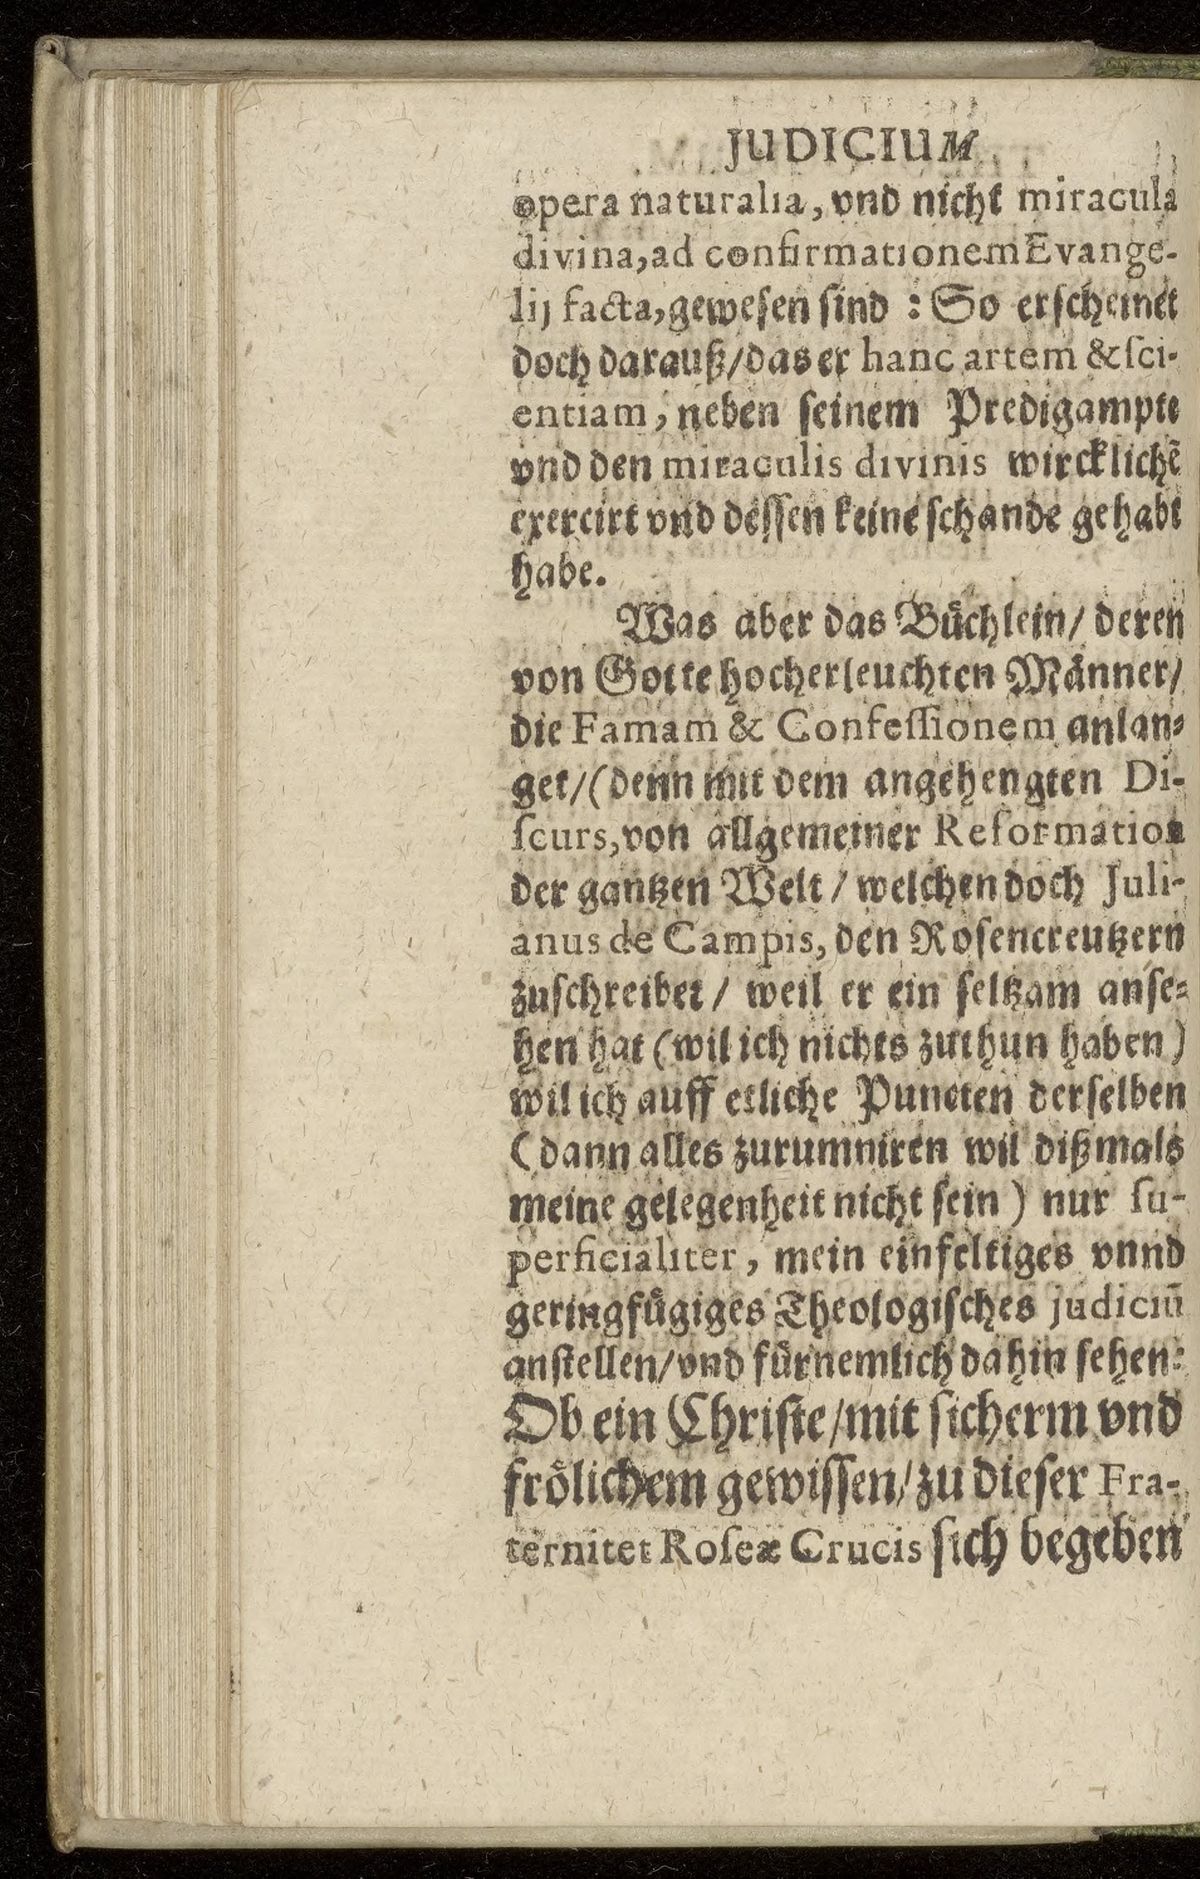 JUDICIUM
opera naturalia, vnd nicht miracula
divina, ad confirmationem Evange-
lij facta, gewesen sind : So erscheinet
doch darauß / das er hanc artem & sci-
entiam, neben seinem Predigampte
vnd den miraculis divinis wircklichẽ
exercirt vnd dessen keine schande gehabt
habe.
Was aber das Bůchlein / deren
von Gotte hocherleuchten Mãnner /
die Famam & Confessionem anlan-
get / (denn mit dem angehengten Di-
scurs, von allgemeiner Reformation
der gantzen Welt / welchen doch Juli-
anus de Campis, den Rosencreutzern
zuschreibet / weil er ein seltzam anse-
hen hat (wil ich nichts zuthun haben)
wil ich auff etliche Puncten derselben
(dann alles zurumniren wil dißmals
meine gelegenheit nicht sein) nur su-
perficialiter, mein einfeltiges vnnd
geringfůgiges Theologisches judiciũ
anstellen / vnd fůrnemlich dahin sehen:
Ob ein Christe / mit sicherm vnd
frőlichem gewissen / zu dieser Fra-
ternitet Roseæ Crucis sich begeben